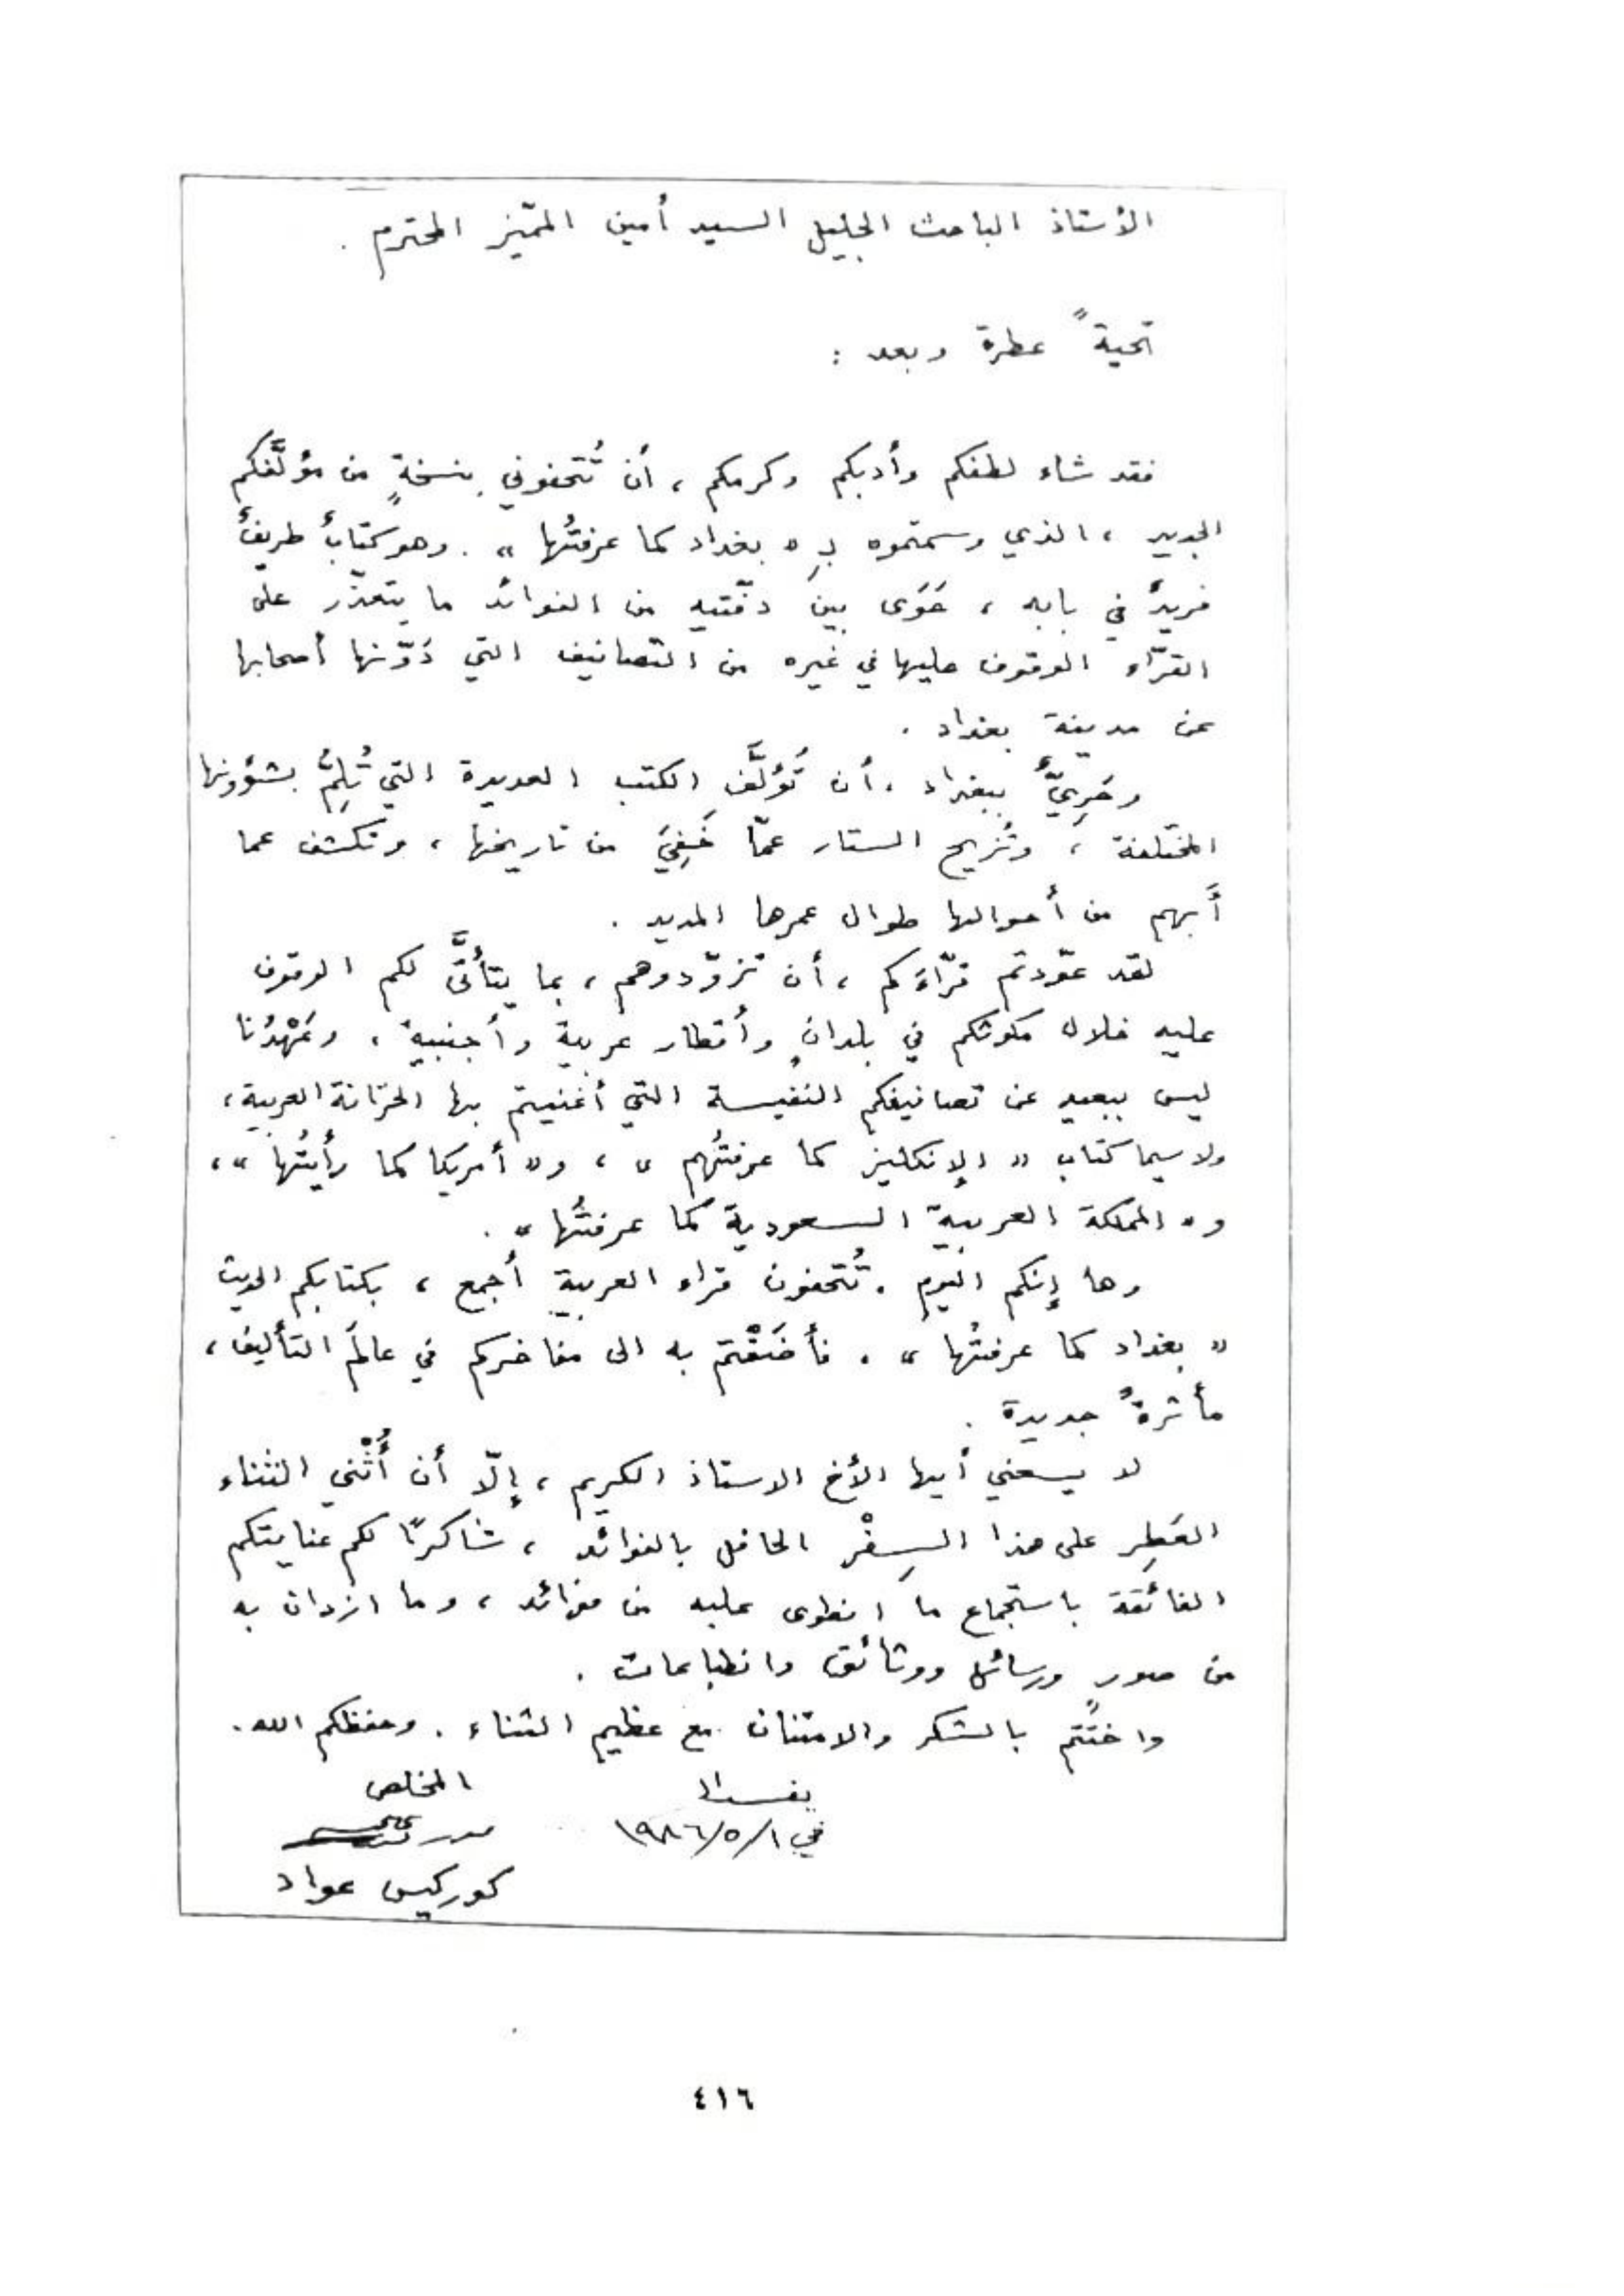 الأستاذ الباحث الجليل السيد أمين المميّز المحترم .
تحيةً عطرة وبعد :
فقد شاء لطفكم وأدبكم وكرمكم ، أن تُتحفوني بنسخةٍ من مؤلَّفكم
الجديد ، الذي وسمتموه بـِ « بغداد كما عرفتُها » . وهو كتابٌ طريفٌ
فريدٌ في بابه ، حَوَى بين دفّتيه من الفوائد ما يتعذّر على
القرّاء الوقوف عليها في غيره من التصانيف التي دَوّنها أصحابها
عن مدينة بغداد .
وحَرِيٌّ ببغداد ، أن تُؤلَّف الكتب العديدة التي تُلِمُّ بشؤونها
المختلفة ، وتُزيح الستار عمّا خَفِيَ من تاريخها ، وتكشف عما
أُبهم من أحوالها طوال عمرها المديد .
لقد عوّدتم قرّاءَكم ، أن تزوّدوهم ، بما يتأتَّى لكم الوقوف
عليه خلال مكوثكم في بلدانٍ وأقطار عربية وأجنبية . وعَهْدُنا
ليس ببعيد عن تصانيفكم النفيسة التي أغنيتم بها الخزانة العربية ،
ولا سيما كتاب « الإنكليز كما عرفتُهم » ، و« أمريكا كما رأيتُها » ،
و« المملكة العربية السعودية كما عرفتُها » .
وها إنكم اليوم . تُتحفون قراء العربية أجمع ، بكتابكم الحديث
« بغداد كما عرفتُها » . فأضَفْتم به الى مفاخركم في عالَم التأليف ،
مأثرةً جديدة .
لا يسعني أيها الأخ الاستاذ الكريم ، إلّا أن أُثْني الثناء
العَطِر على هذا السِفْر الحافل بالفوائد ، شاكرًا لكم عنايتكم
الفائقة باستجماع ما انطوى عليه من فوائد ، وما ازدان به
من صورٍ ورسائل ووثائق وانطباعات .
واختتم بالشكر والامتنان مع عظيم الثناء . وحفظكم الله .
المخلص
بغداد
في ١/٥/١٩٨٦
كوركيس عواد
٤١٦